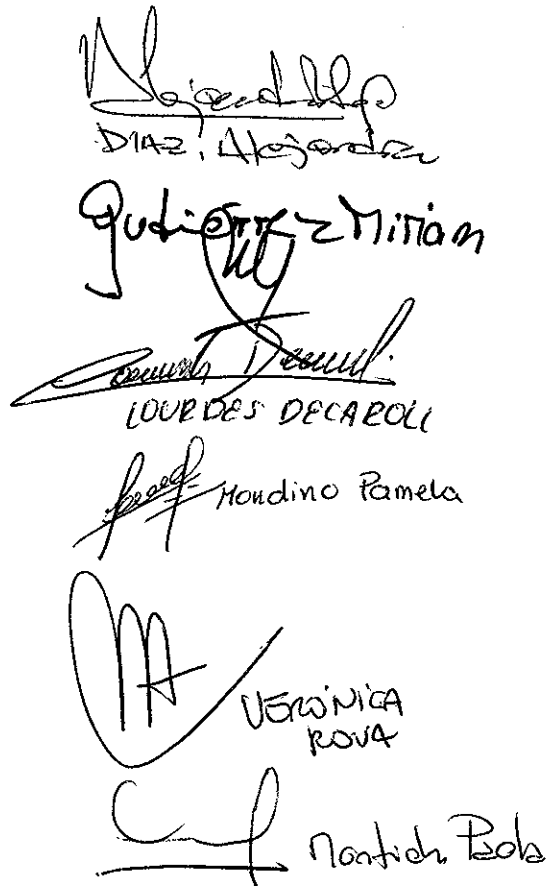 DIAZ, Alejandra
Gutierrez Miriam
LOURDES DECAROLI
Mondino Pamela
VERÓNICA
ROVA
Paola